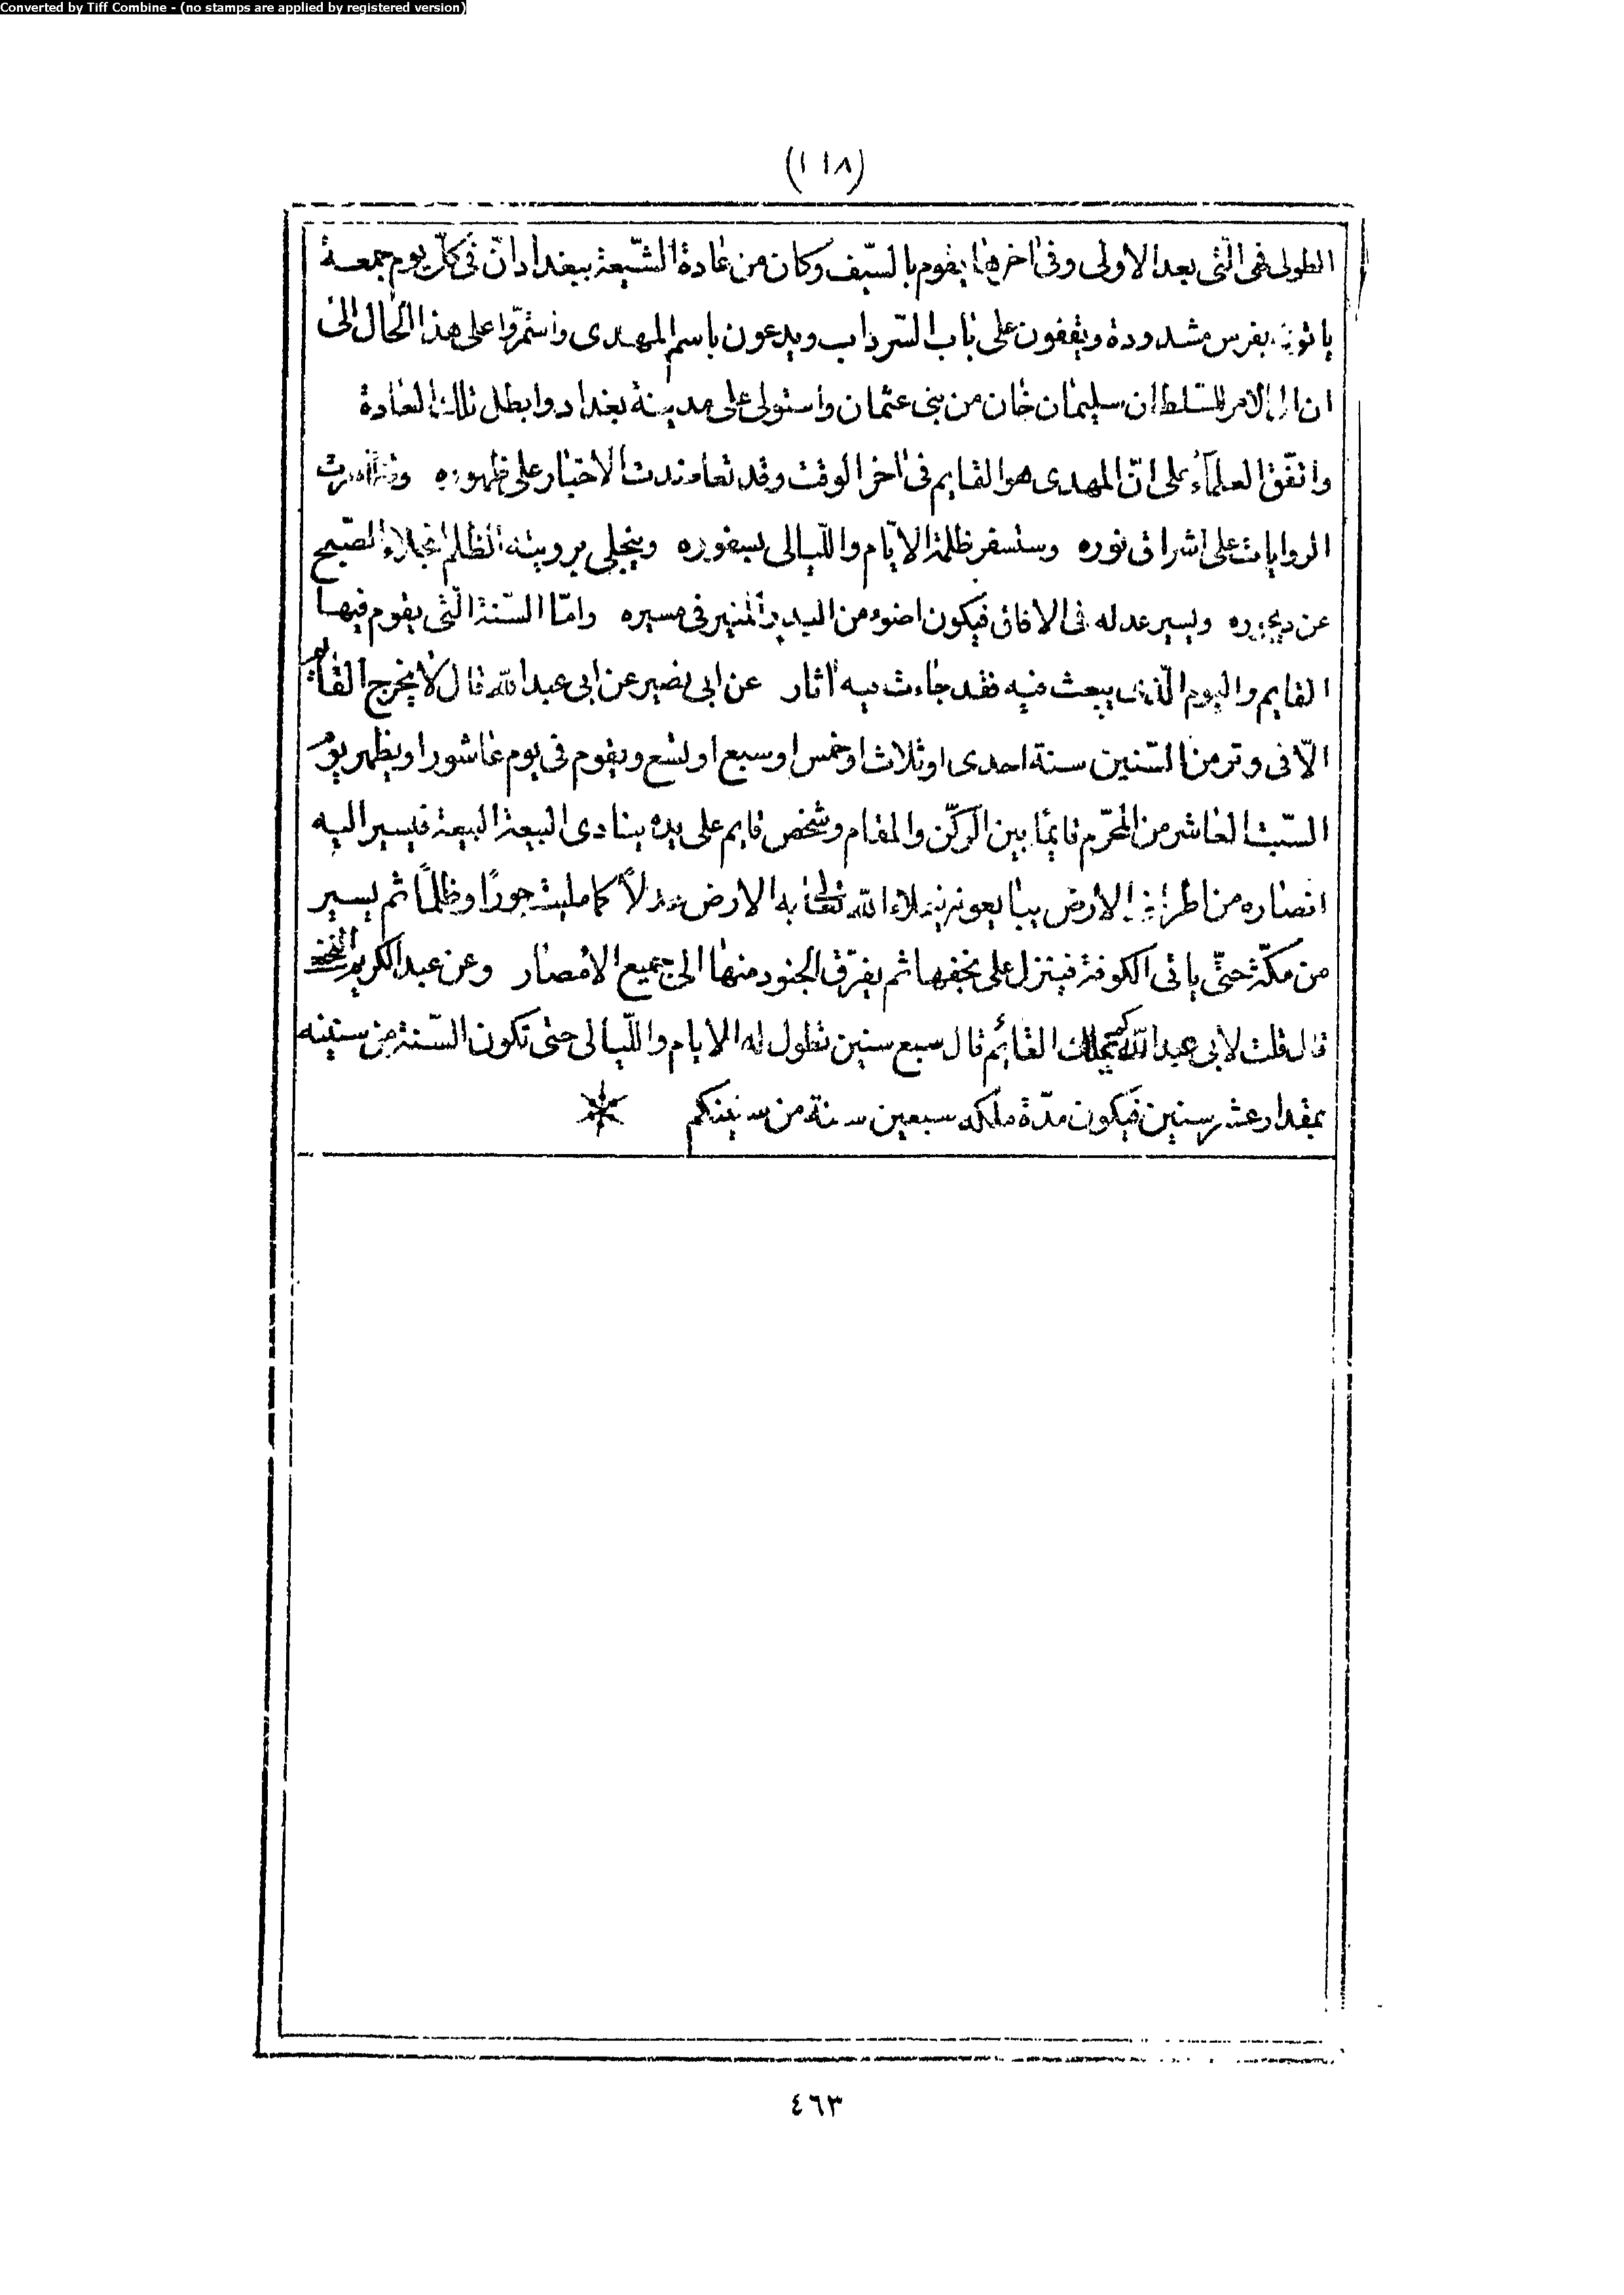 Converted by Tiff Combine - (no stamps are applied by registered version)
(١١٨)
الطولى فهى الّتى بعد الاولى وفى اخرها يقوم بالسّيف وكان من عادة الشّيعة ببغداد انّ فى كلّ يوم جمعة
ياتون بفرس مشدودة ويقفون على باب السّرداب ويدعون باسم المهدى واستمرّوا على هذا الحال الى
ان ال الامر للسّلطان سليمان خان من بنى عثمان واستولى على مدينة بغداد وابطل تلك العادة
واتّفق العلمآء على انّ المهدى هو القايم فى اخر الوقت وقد تعاضدت الاخبار على ظهوره وتظاهرت
الروايات على اشراق نوره وستسفر ظلمة الايّام واللّيالى بسفوره وينجلى برويته الظلم انجلاء الصّبح
عن ديجوره ويسير عدله فى الافاق فيكون اضوء من البدر المنير فى مسيره وامّا السّنة الّتى يقوم فيها
القايم واليوم الّذى يبعث فيه فقد جاءت فيه اثار عن ابى بصير عن ابى عبد الله قال لا يخرج القائم
الّا فى وتر من السّنين سنة احدى او ثلاث او خمس او سبع او تسع ويقوم فى يوم عاشورا ويظهر يوم
السّبت العاشر من المحرّم قايمًا بين الركّن والمقام وشخص قايم على يده ينادى البيعة البيعة فيسير اليه
انصاره من اطراف الارض يبايعونه فيملاء الله تعالى به الارض عدلاً كما مليت جورًا وظلمًا ثم يسير
من مكّة حتّى ياتى الكوفة فينزل على نجفها ثم يفرّق الجنود منها الى جميع الامصار وعن عبد الكريم
قال قلت لابى عبد الله كم يملك القائم قال سبع سنين تطول له الايام واللّيالى حتى تكون السّنة من سنينه
بمقدار عشر سنين فيكون مدّة ملكه سبعين سنة من سنينكم
٤٦٣